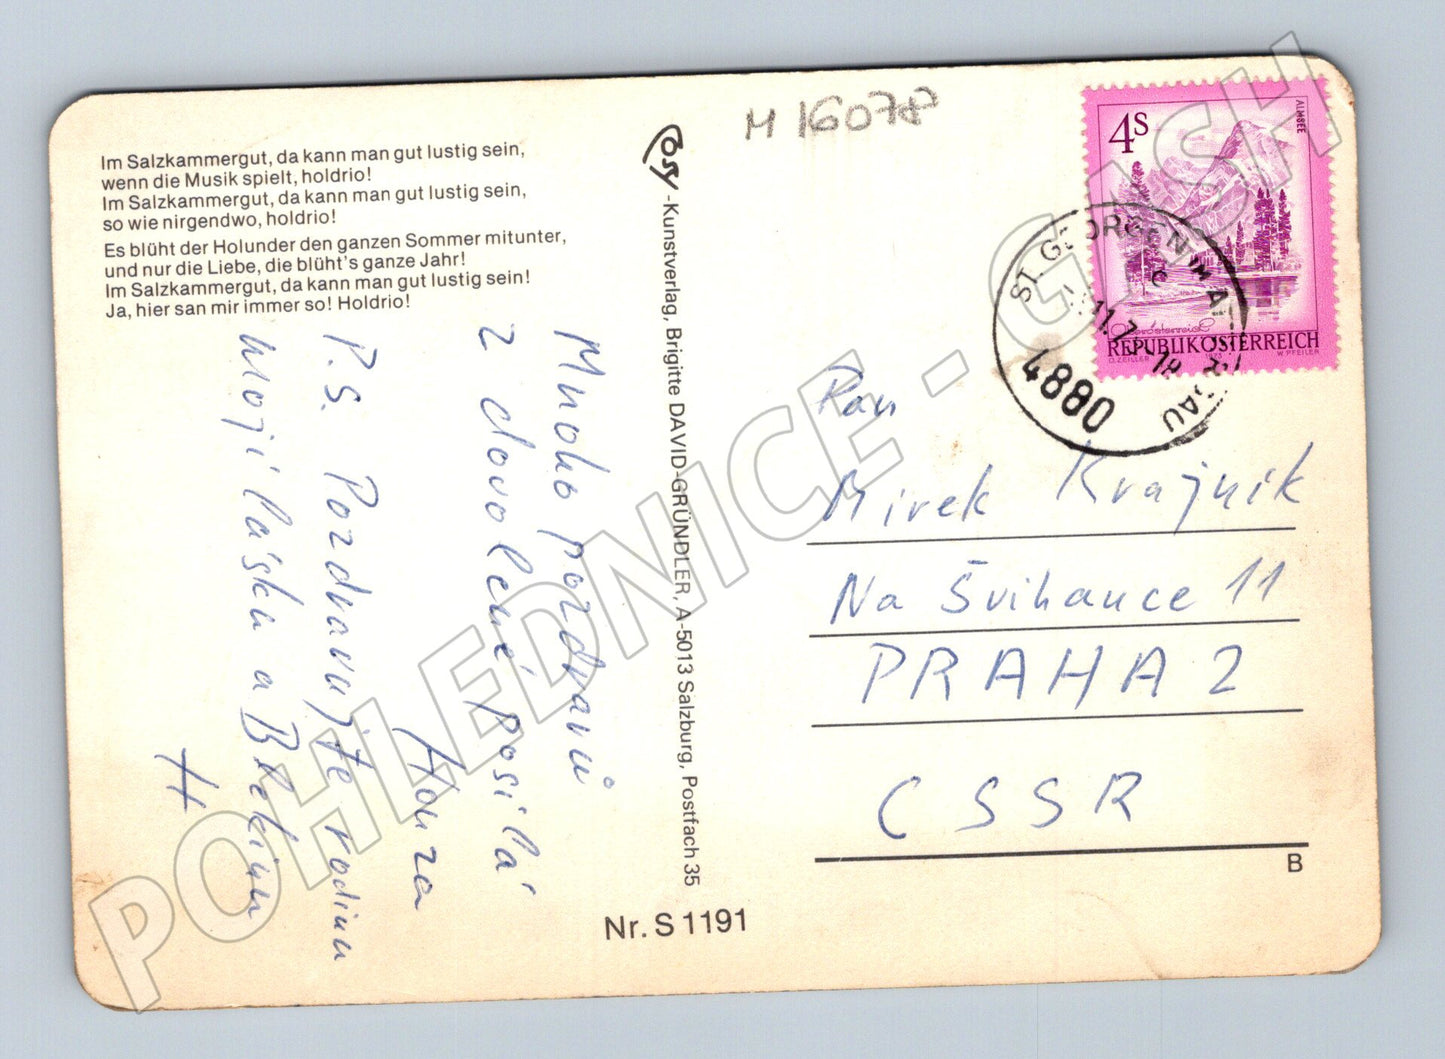 Im Salzkammergut, da kann man gut lustig sein,
wenn die Musik spielt, holdrio!
Im Salzkammergut, da kann man gut lustig sein,
so wie nirgendwo, holdrio!
Es blüht der Holunder den ganzen Sommer mitunter,
und nur die Liebe, die blüht's ganze Jahr!
Im Salzkammergut, da kann man gut lustig sein!
Ja, hier san mir immer so! Holdrio!
Mnoho pozdravů
z dovolené posílá
Honza
P.S. Pozdravujte rodinu
moji lásku a
H
Cosy-Kunstverlag, Brigitte DAVID-GRÜNDLER, A-5013 Salzburg, Postfach 35
Nr. S 1191
M 16078
4S
ALMSEE
REPUBLIK ÖSTERREICH
O.ZEILLER 1973 W.PFEILER
ST. GEORGEN IM ATTERGAU
4880
Pan
Mirek Krajník
Na Švihance 11
PRAHA 2
CSSR
B
POHLEDNICE - GASH